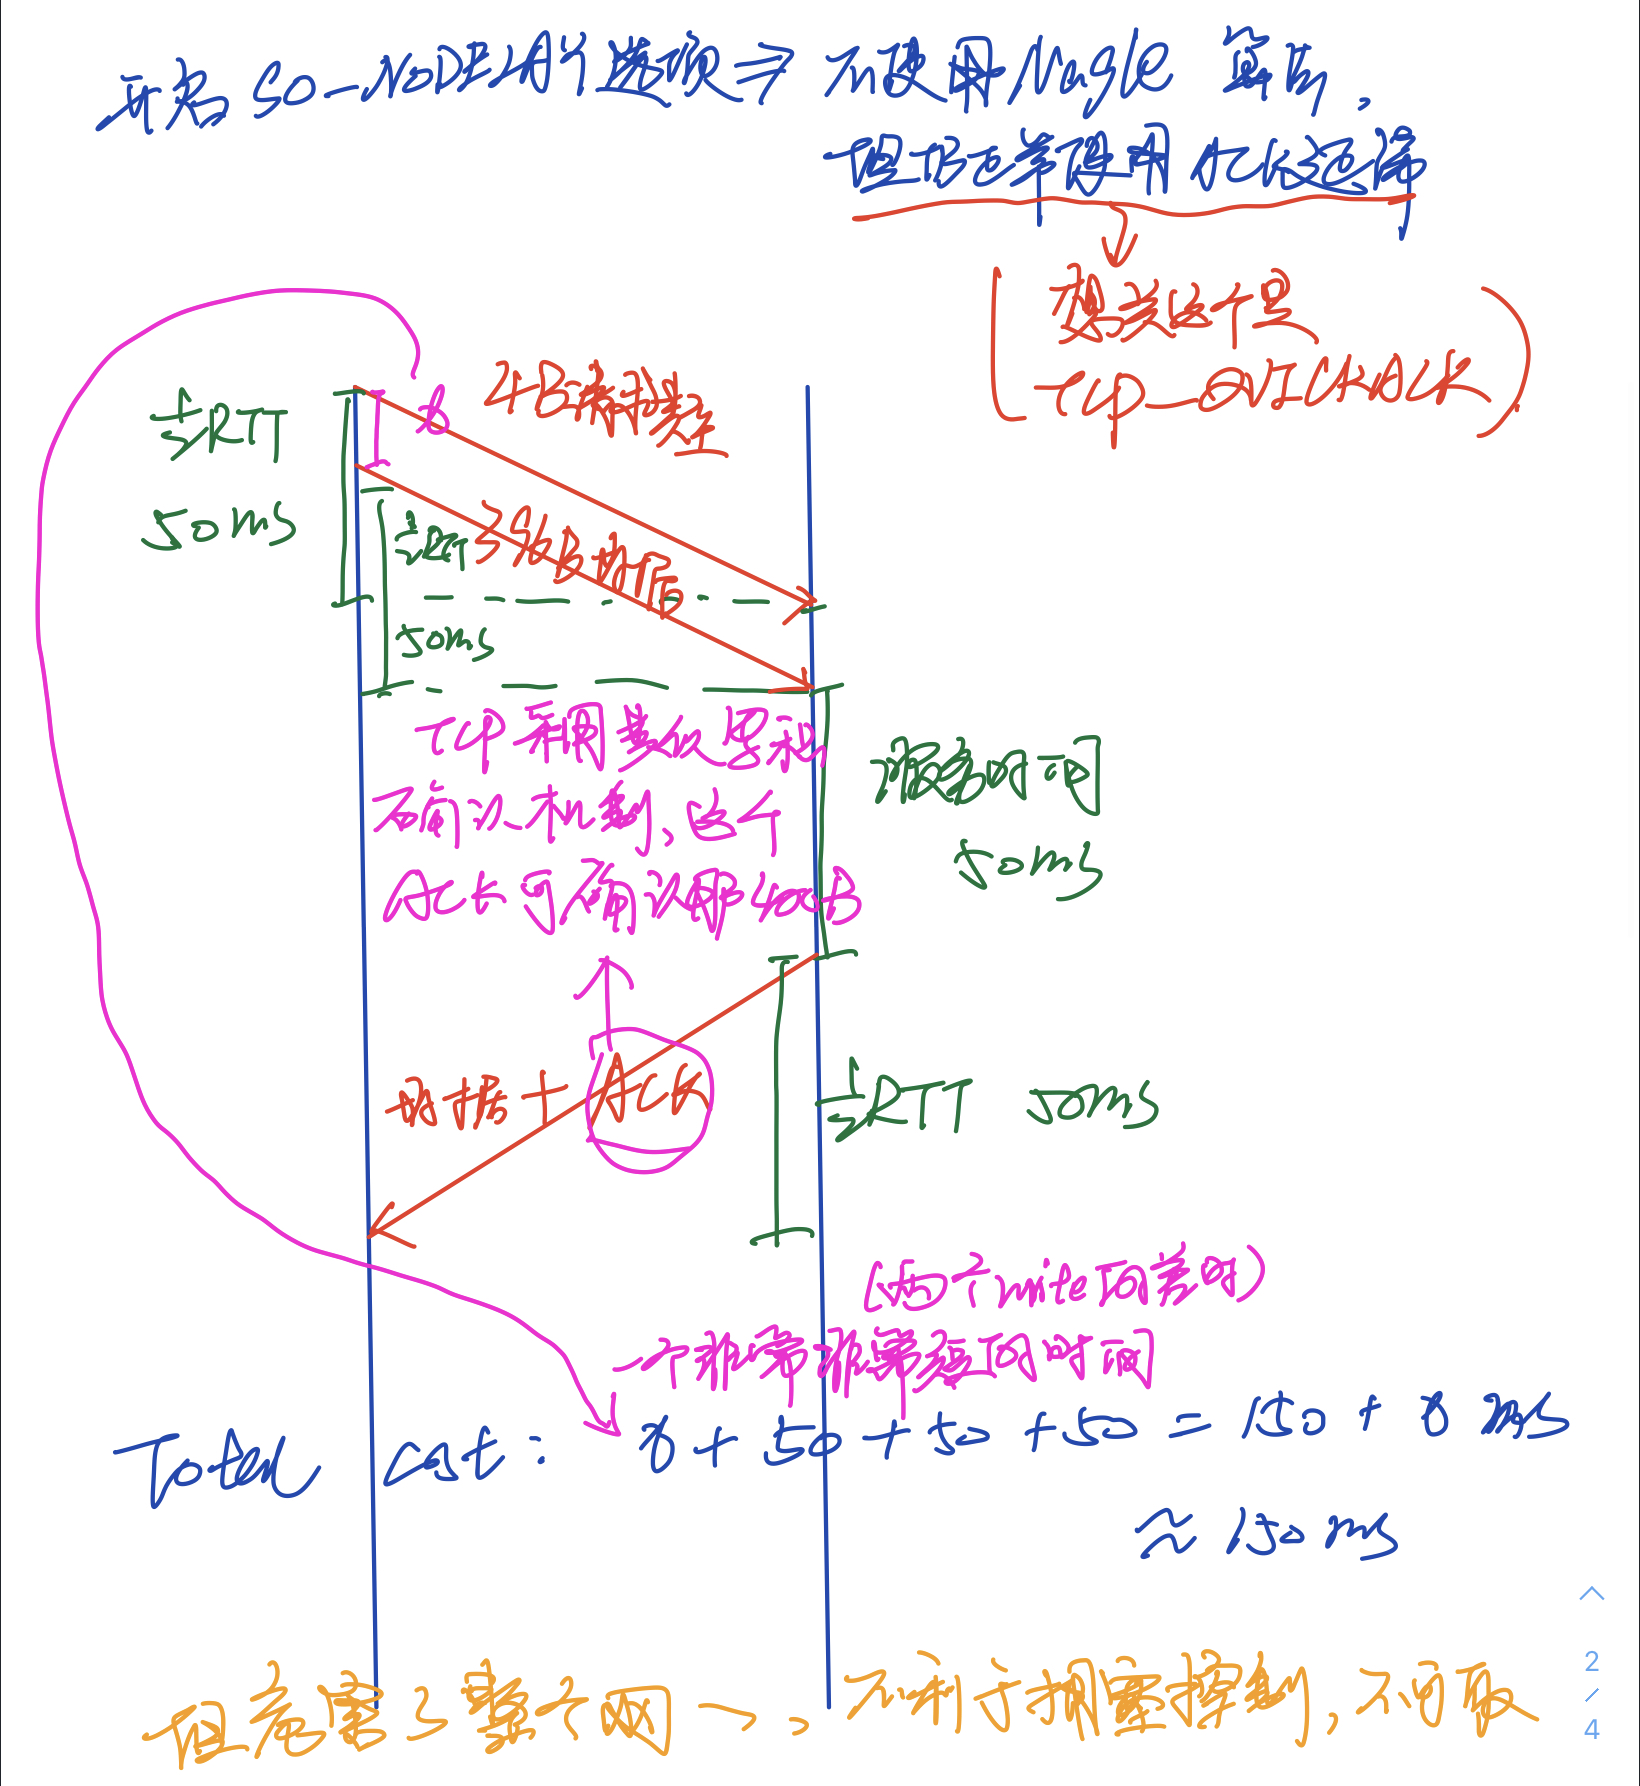 开启 SO_NODELAY选项 ⇒ 不使用Nagle 算法，
但服务器使用ACK延时
想关这个是
TCP_QUICKACK
½RTT
50ms
δ
4B请求类型
½RTT
396B数据
50ms
TCP采用类似累积
确认机制，这个
ACK可确认那400B
服务时间
50ms
数据 + ACK
½RTT 50ms
(两个write间差时)
一个非常非常短的时间
Total cost: δ + 50 + 50 + 50 = 150 + δ ms
≈ 150 ms
但危害了整个网络，不利于拥塞控制，不可取
2/4